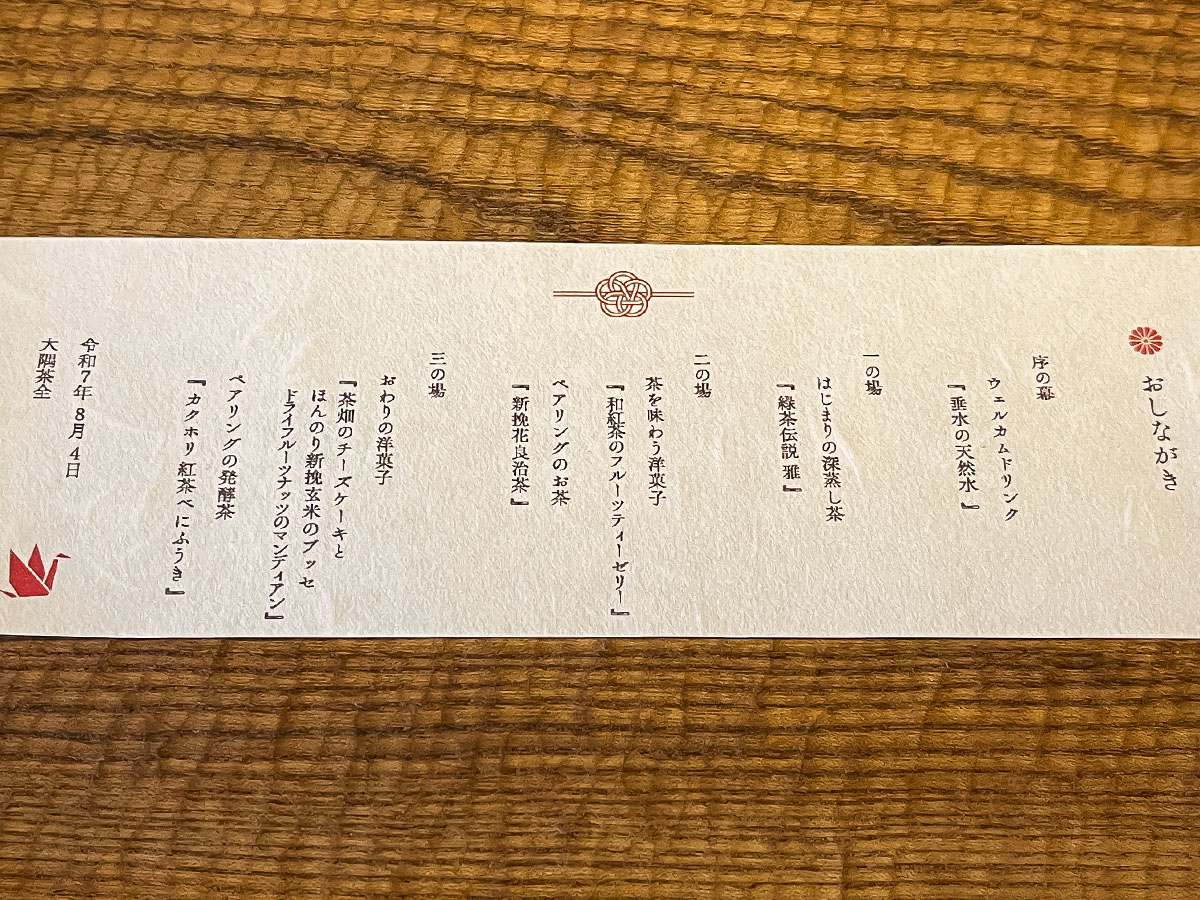 おしながき
序の幕
ウェルカムドリンク
『垂水の天然水』
一の場
はじまりの深蒸し茶
『緑茶伝説 雅』
二の場
茶を味わう洋菓子
『和紅茶のフルーツティーゼリー』
ペアリングのお茶
『新挽花良治茶』
三の場
おわりの洋菓子
『茶畑のチーズケーキと
ほんのり新挽玄米のブッセ
ドライフルーツナッツのマンディアン』
ペアリングの発酵茶
『カクホリ 紅茶べにふうき』
令和7年 8月 4日
大隅茶全